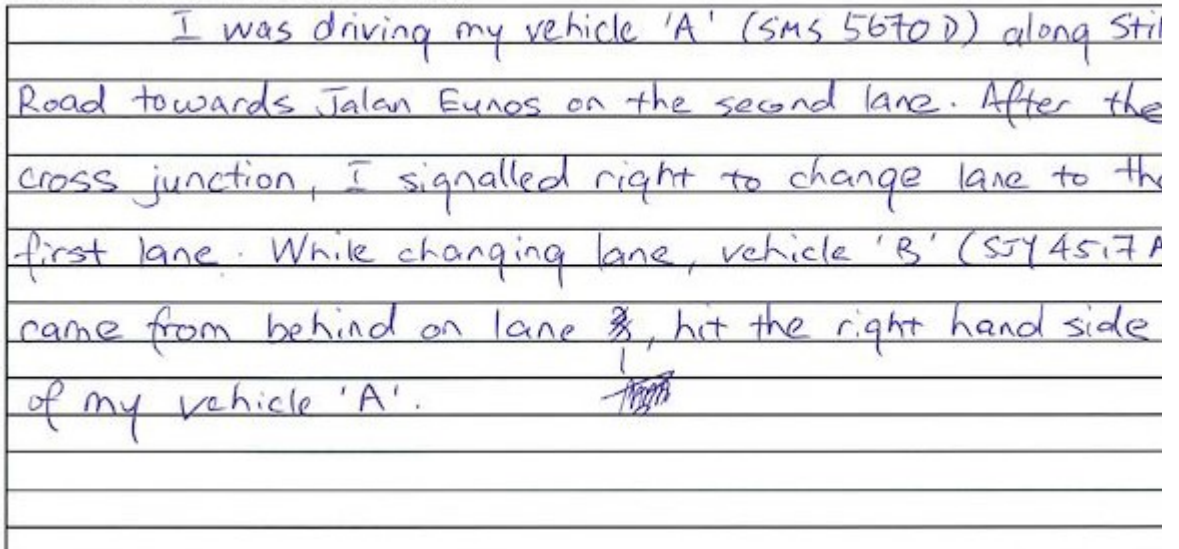 I was driving my vehicle 'A' (SMS 5670 D) along Stil
Road towards Jalan Eunos on the second lane. After the
cross junction, I signalled right to change lane to the
first lane. While changing lane, vehicle 'B' (SJY 4517 A
came from behind on lane , hit the right hand side
1
of my vehicle 'A'.